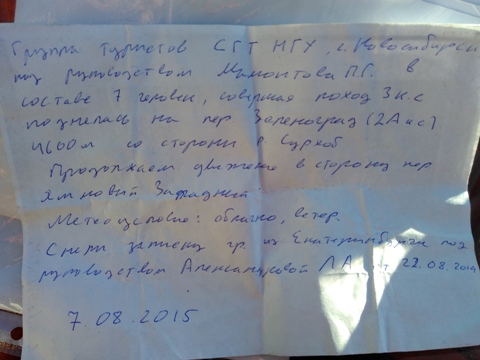 Группа туристов СГТ НГУ, г. Новосибирск
под руководством Мамонтова П.Г. в
составе 7 человек, совершая поход 3 к.с
поднялась на пер Зеленоград (2А кс)
4600 м со стороны р Сурхоб
Продолжаем движение в сторону пер
Ямновый Западный
Метеоусловия: облачно, ветер.
Сняли записку гр. из Екатеринбурга под
руководством Александровой Л А, от 22.08.2014
7.08.2015